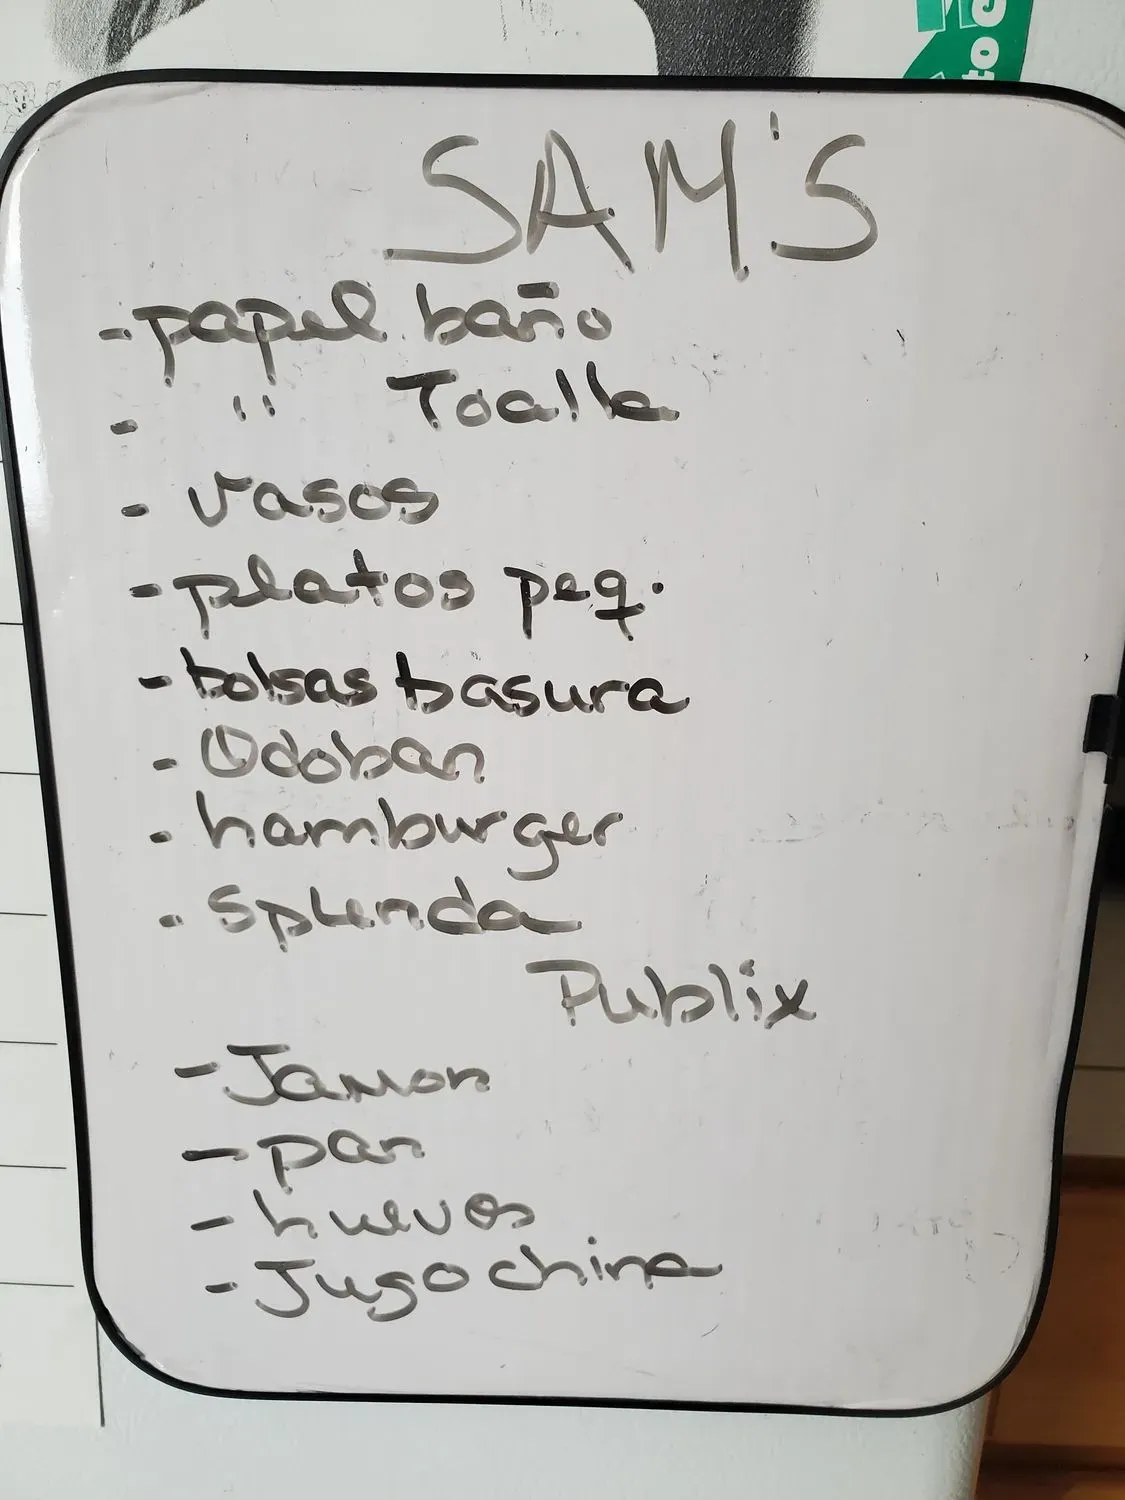 SAM'S
- papel baño
- " Toalla
- vasos
- platos peq.
- bolsas basura
- Odoban
- hamburger
- Splenda
Publix
- Jamon
- pan
- huevos
- Jugo china